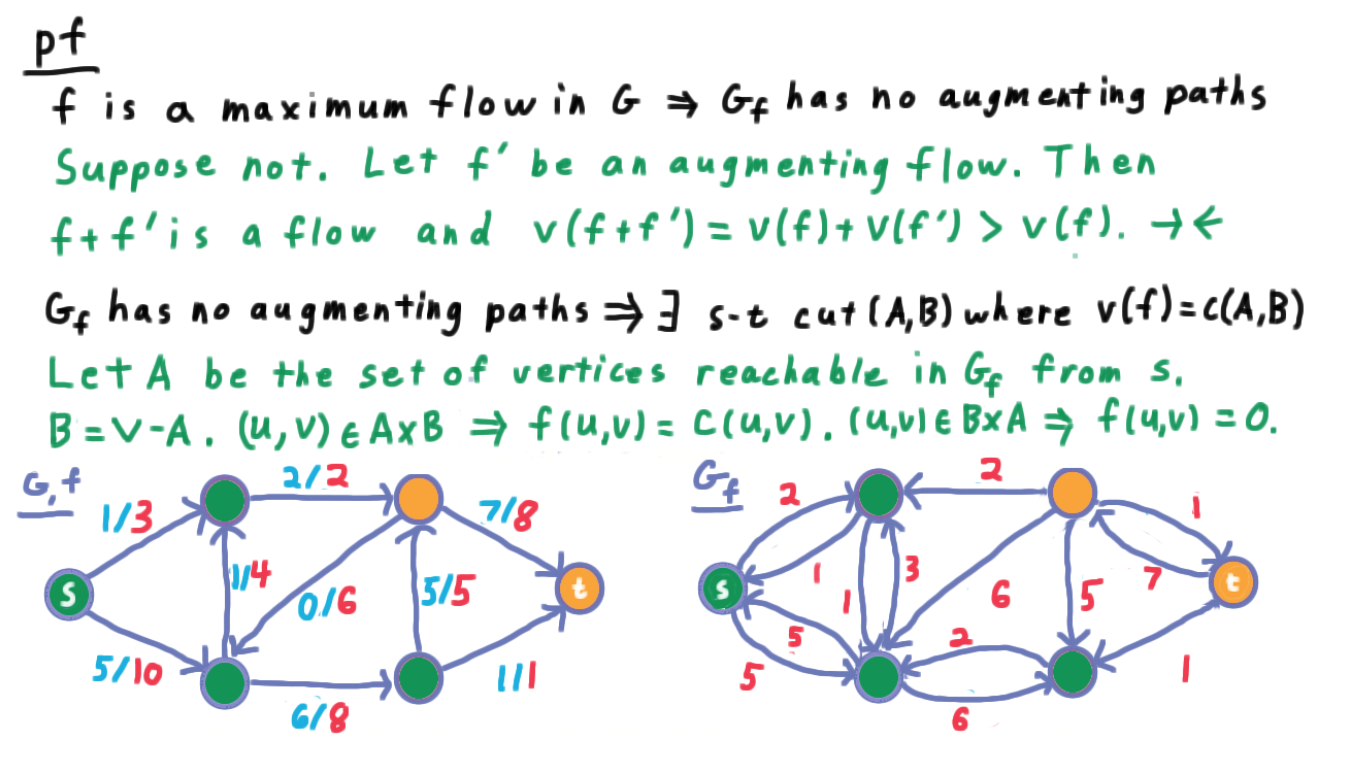 pf
f is a maximum flow in G ⇒ G_f has no augmenting paths
Suppose not. Let f' be an augmenting flow. Then
f+f' is a flow and v(f+f') = v(f)+v(f') > v(f). →←
G_f has no augmenting paths ⇒ ∃ s-t cut (A,B) where v(f)=c(A,B)
Let A be the set of vertices reachable in G_f from s.
B = V-A. (u,v) ∈ A×B ⇒ f(u,v) = c(u,v). (u,v) ∈ B×A ⇒ f(u,v) = 0.
G,f
2/2
1/3
7/8
1/4
0/6
5/5
s
t
5/10
1/1
6/8
G_f
2
2
1
1
1
3
6
5
7
s
t
5
5
2
1
6